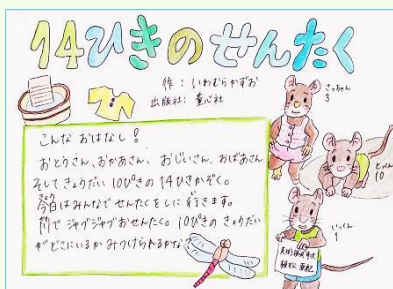 14ひきのせんたく
作：いわむらかずお
出版社：童心社
さっちゃん
3
とっくん
10
いっくん
1
こんな おはなし！
おとうさん、おかあさん、おじいさん、おばあさん
そして きょうだい 10ぴきの 14ひきかぞく。
今日はみんなで せんたくをしに 行きます。
川で ジャブジャブ おせんたく。10ぴきの きょうだい
がどこにいるか みつけられるかな？